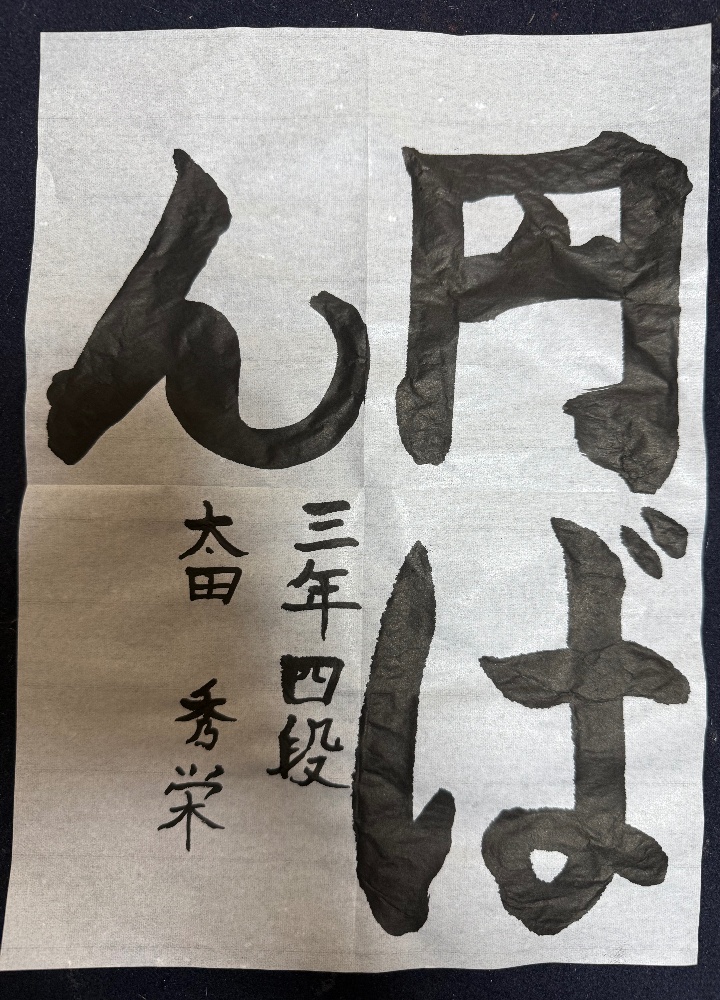 円ば
ん
三年四段
太田 秀栄